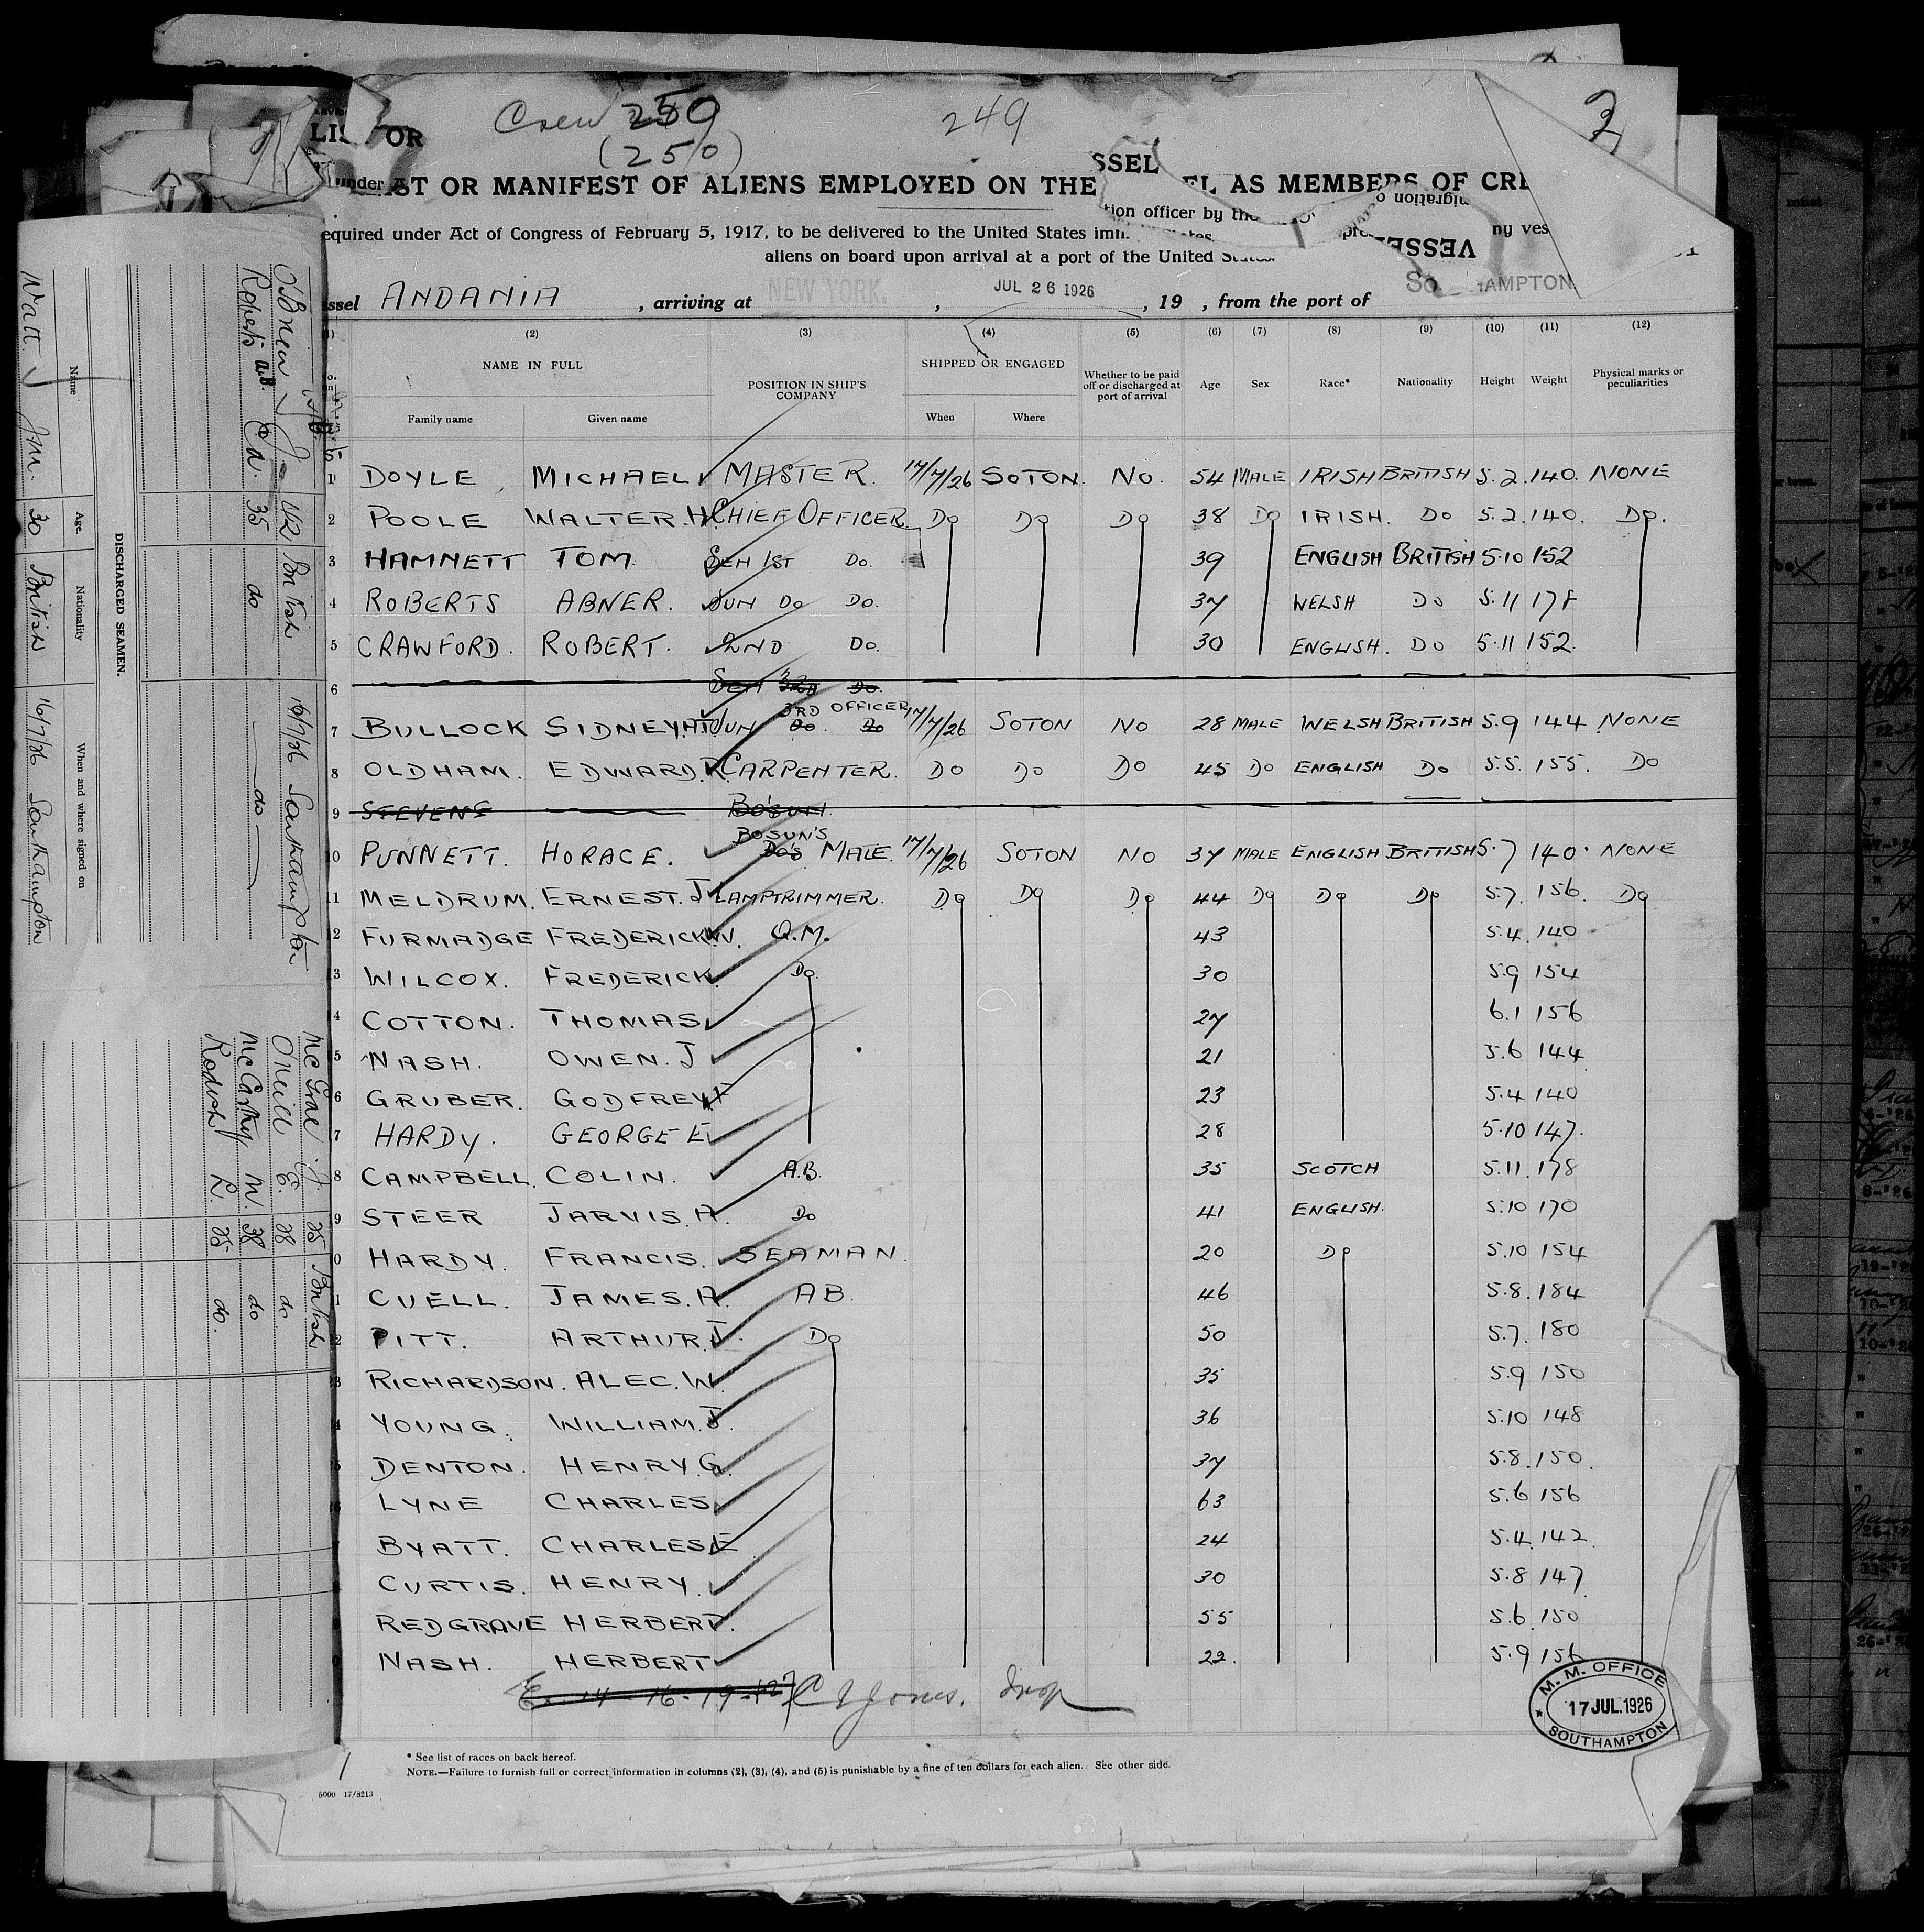 Crew 250
249
3
(250)
LIS OR
SSEL
under
ST OR MANIFEST OF ALIENS EMPLOYED ON THE EL AS MEMBERS OF CRE
tion officer by the
equired under Act of Congress of February 5, 1917, to be delivered to the United States imm
ny ves
VESSE
aliens on board upon arrival at a port of the United States.
ssel ANDANIA , arriving at NEW YORK. , JUL 26 1926 , 19 , from the port of So HAMPTON
(2) (3) (4) (5) (6) (7) (8) (9) (10) (11) (12)
NAME IN FULL POSITION IN SHIP'S COMPANY SHIPPED OR ENGAGED Whether to be paid off or discharged at port of arrival Age Sex Race* Nationality Height Weight Physical marks or peculiarities
Family name Given name When Where
1 DOYLE MICHAEL MASTER. 17/7/26 SOTON. NO. 54 MALE IRISH BRITISH 5.2. 140. NONE
2 POOLE WALTER. H CHIEF OFFICER. DO DO DO 38 DO IRISH. DO 5.2. 140. DO.
3 HAMNETT TOM. SEN 1ST DO. 39 ENGLISH BRITISH 5.10 152
4 ROBERTS ABNER. JUN DO DO. 37 WELSH DO 5.11 178
5 CRAWFORD. ROBERT. 2ND DO. 30 ENGLISH. DO 5.11 152.
6 SEN 3RD DO.
3RD OFFICER
7 BULLOCK SIDNEY.A.T. JUN DO. DO 17/7/26 SOTON NO 28 MALE WELSH BRITISH 5.9 144 NONE
8 OLDHAM. EDWARD.R CARPENTER. DO DO DO 45 DO ENGLISH DO 5.5. 155. DO
9 STEVENS BO'SUN.
BOSUN'S
10 PUNNETT. HORACE. DO'S MATE. 17/7/26 SOTON NO 37 MALE ENGLISH BRITISH 5.7 140. NONE
11 MELDRUM. ERNEST. J LAMPTRIMMER. DO DO DO 44 DO DO DO 5.7. 156. DO
2 FURMADGE FREDERICK W. Q.M. 43 5.4. 140
3 WILCOX. FREDERICK. DO 30 5.9 154
4 COTTON. THOMAS 27 6.1 156
5 NASH. OWEN. J 21 5.6 144
6 GRUBER. GODFREY. F 23 5.4 140
7 HARDY. GEORGE E 28 5.10 147.
8 CAMPBELL. COLIN. A.B. 35 SCOTCH 5.11. 178
9 STEER JARVIS. A. DO 41 ENGLISH. 5.10 170
0 HARDY. FRANCIS. SEAMAN. 20 DO 5.10 154
1 CUELL. JAMES. A. AB. 46 5.8. 184
2 PITT. ARTHUR. J. DO 50 5.7. 180
3 RICHARDSON. ALEC. W. 35 5.9 150
4 YOUNG. WILLIAM. J. 36 5.10 148
5 DENTON. HENRY. G. 37 5.8. 150.
6 LYNE CHARLES 63 5.6 156
BYATT. CHARLES E 24 5.4. 142.
CURTIS. HENRY. 30 5.8 147
REDGRAVE HERBERT. 55 5.6. 150
NASH. HERBERT 22. 5.9 156
14 - 16 - 19 - C Y Jones.
M. M. OFFICE
17 JUL. 1926
SOUTHAMPTON
1
* See list of races on back hereof.
NOTE.—Failure to furnish full or correct information in columns (2), (3), (4), and (5) is punishable by a fine of ten dollars for each alien. See other side.
5000 17/8213
DISCHARGED SEAMEN.
Name Age. Nationality When and where signed on
Watt. J Jnr. 30 British 16/7/26 Southampton
O'Brien J 42 British 16/7/26 Southampton
Roberts a.b. Ed. 35 do do
Mc Grae J. 25 British
O'Neill E. 28 do.
McCarthy M. 38 do
Rodish R. 25 do.
must
box